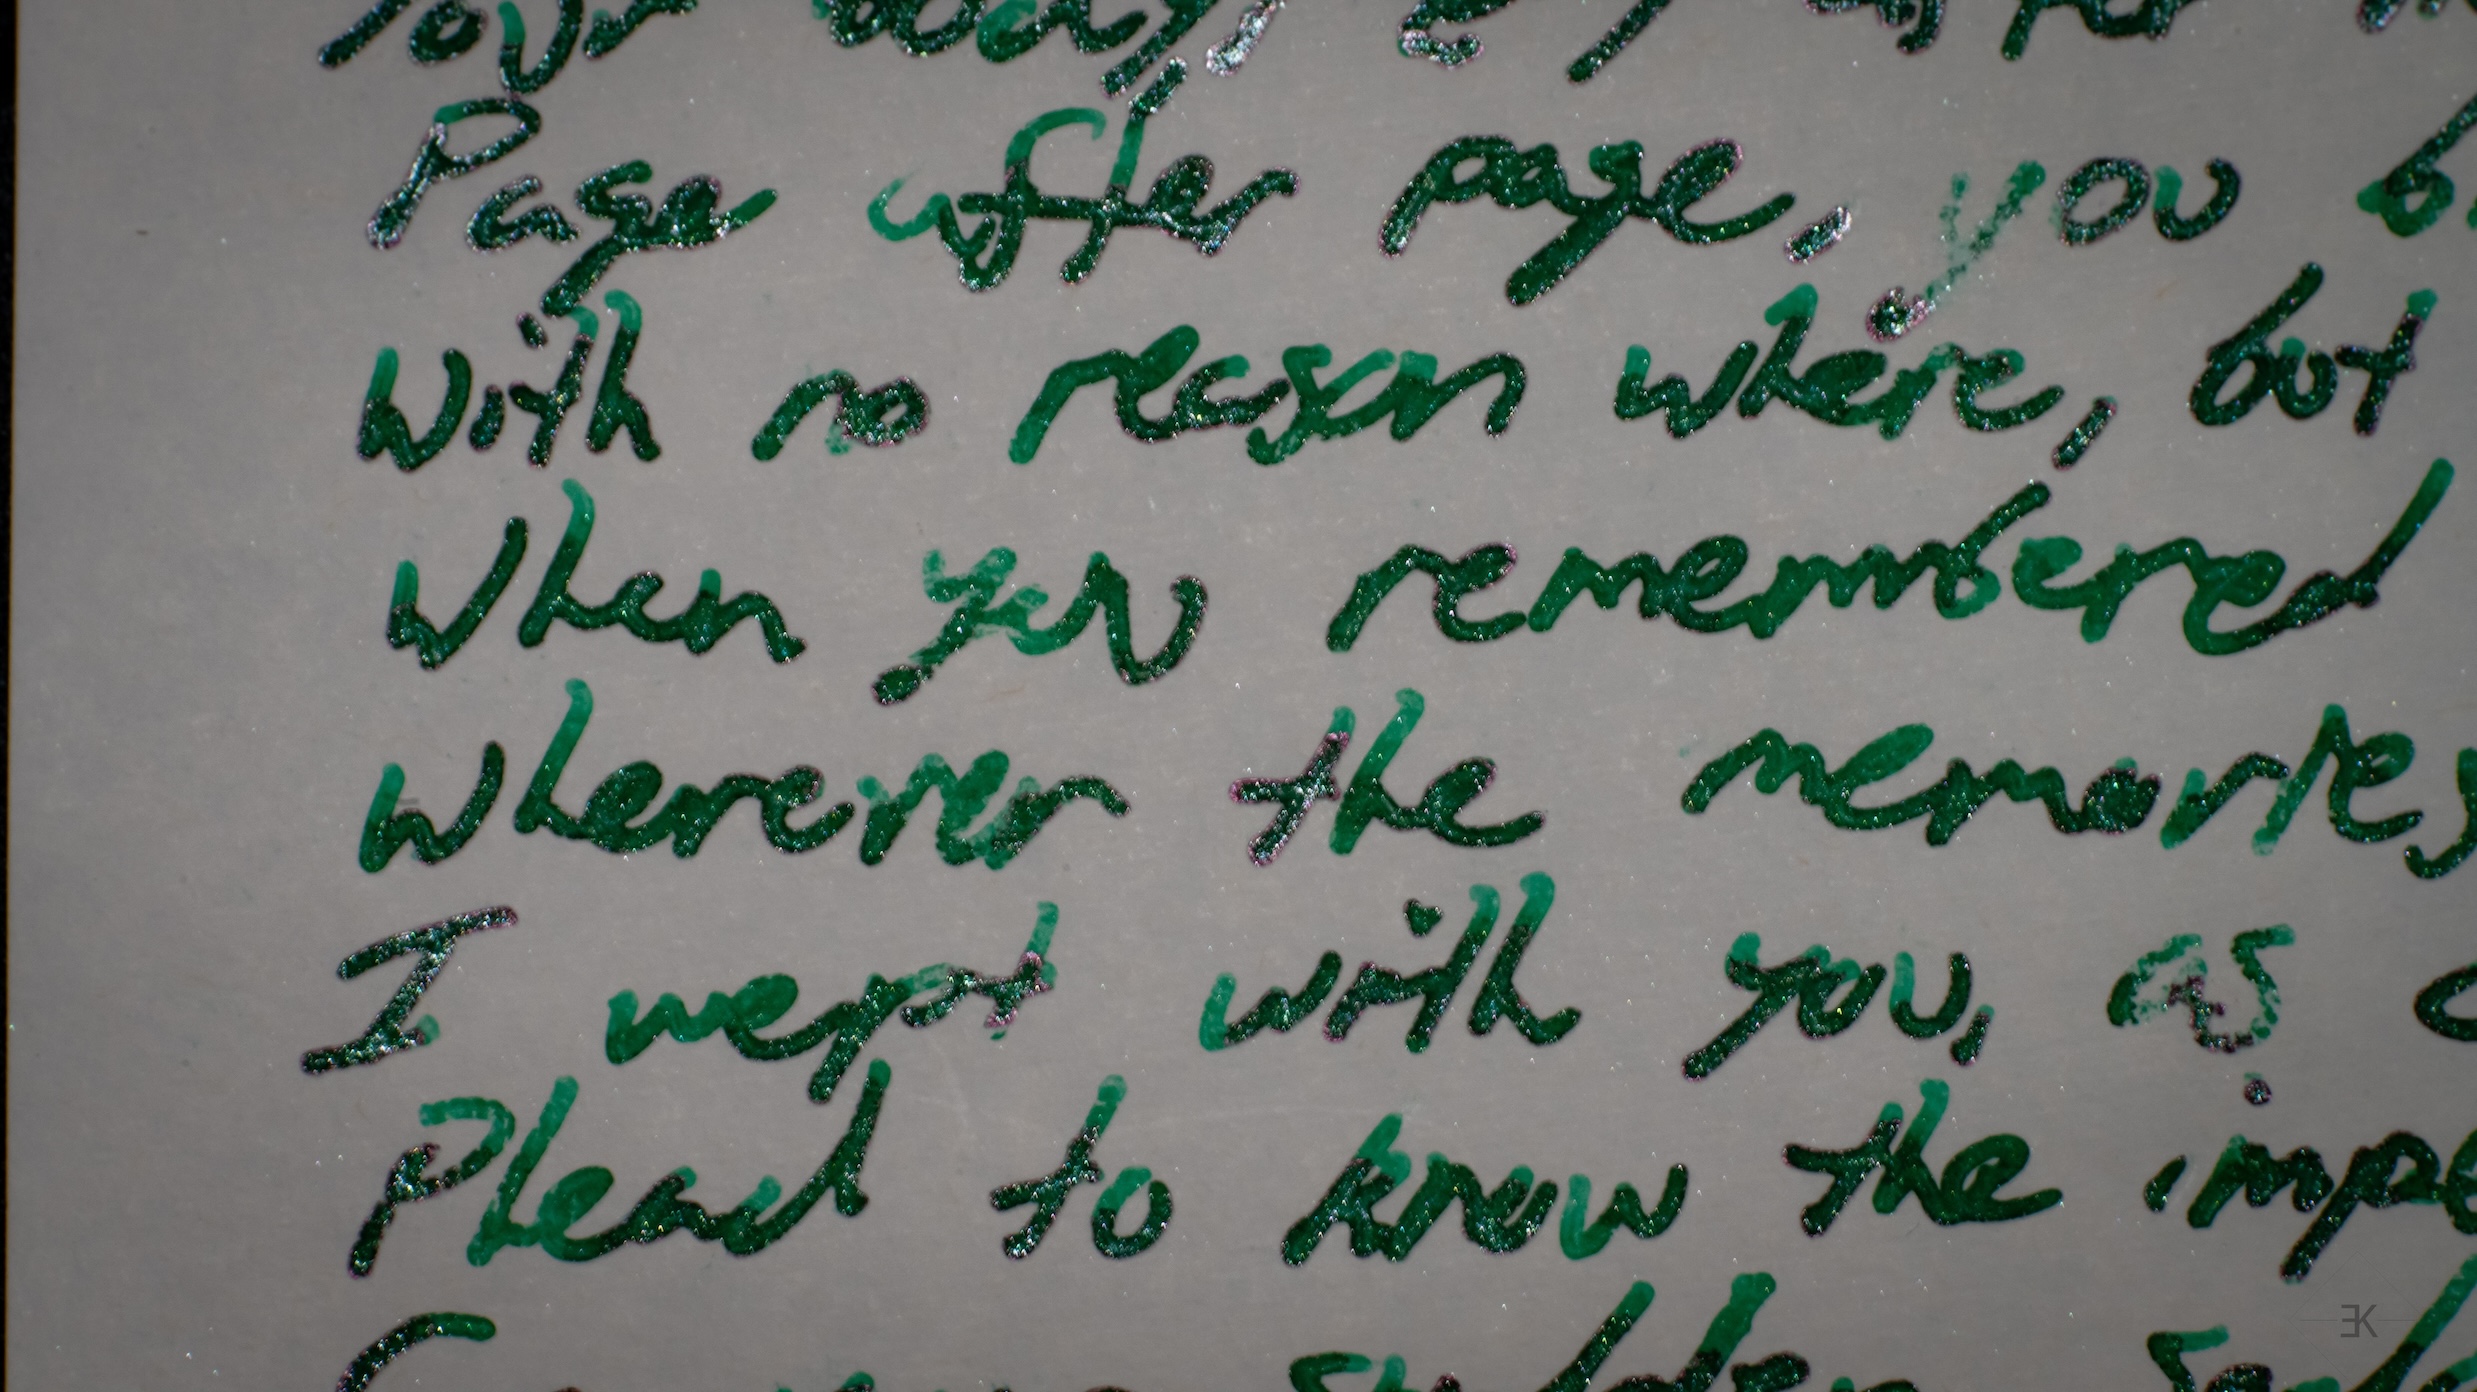 Your body,
Page after page, you
With no reason where, but
When you remembered
Wherever the memories
I wept with you, as
Plead to know the
sudden
EK